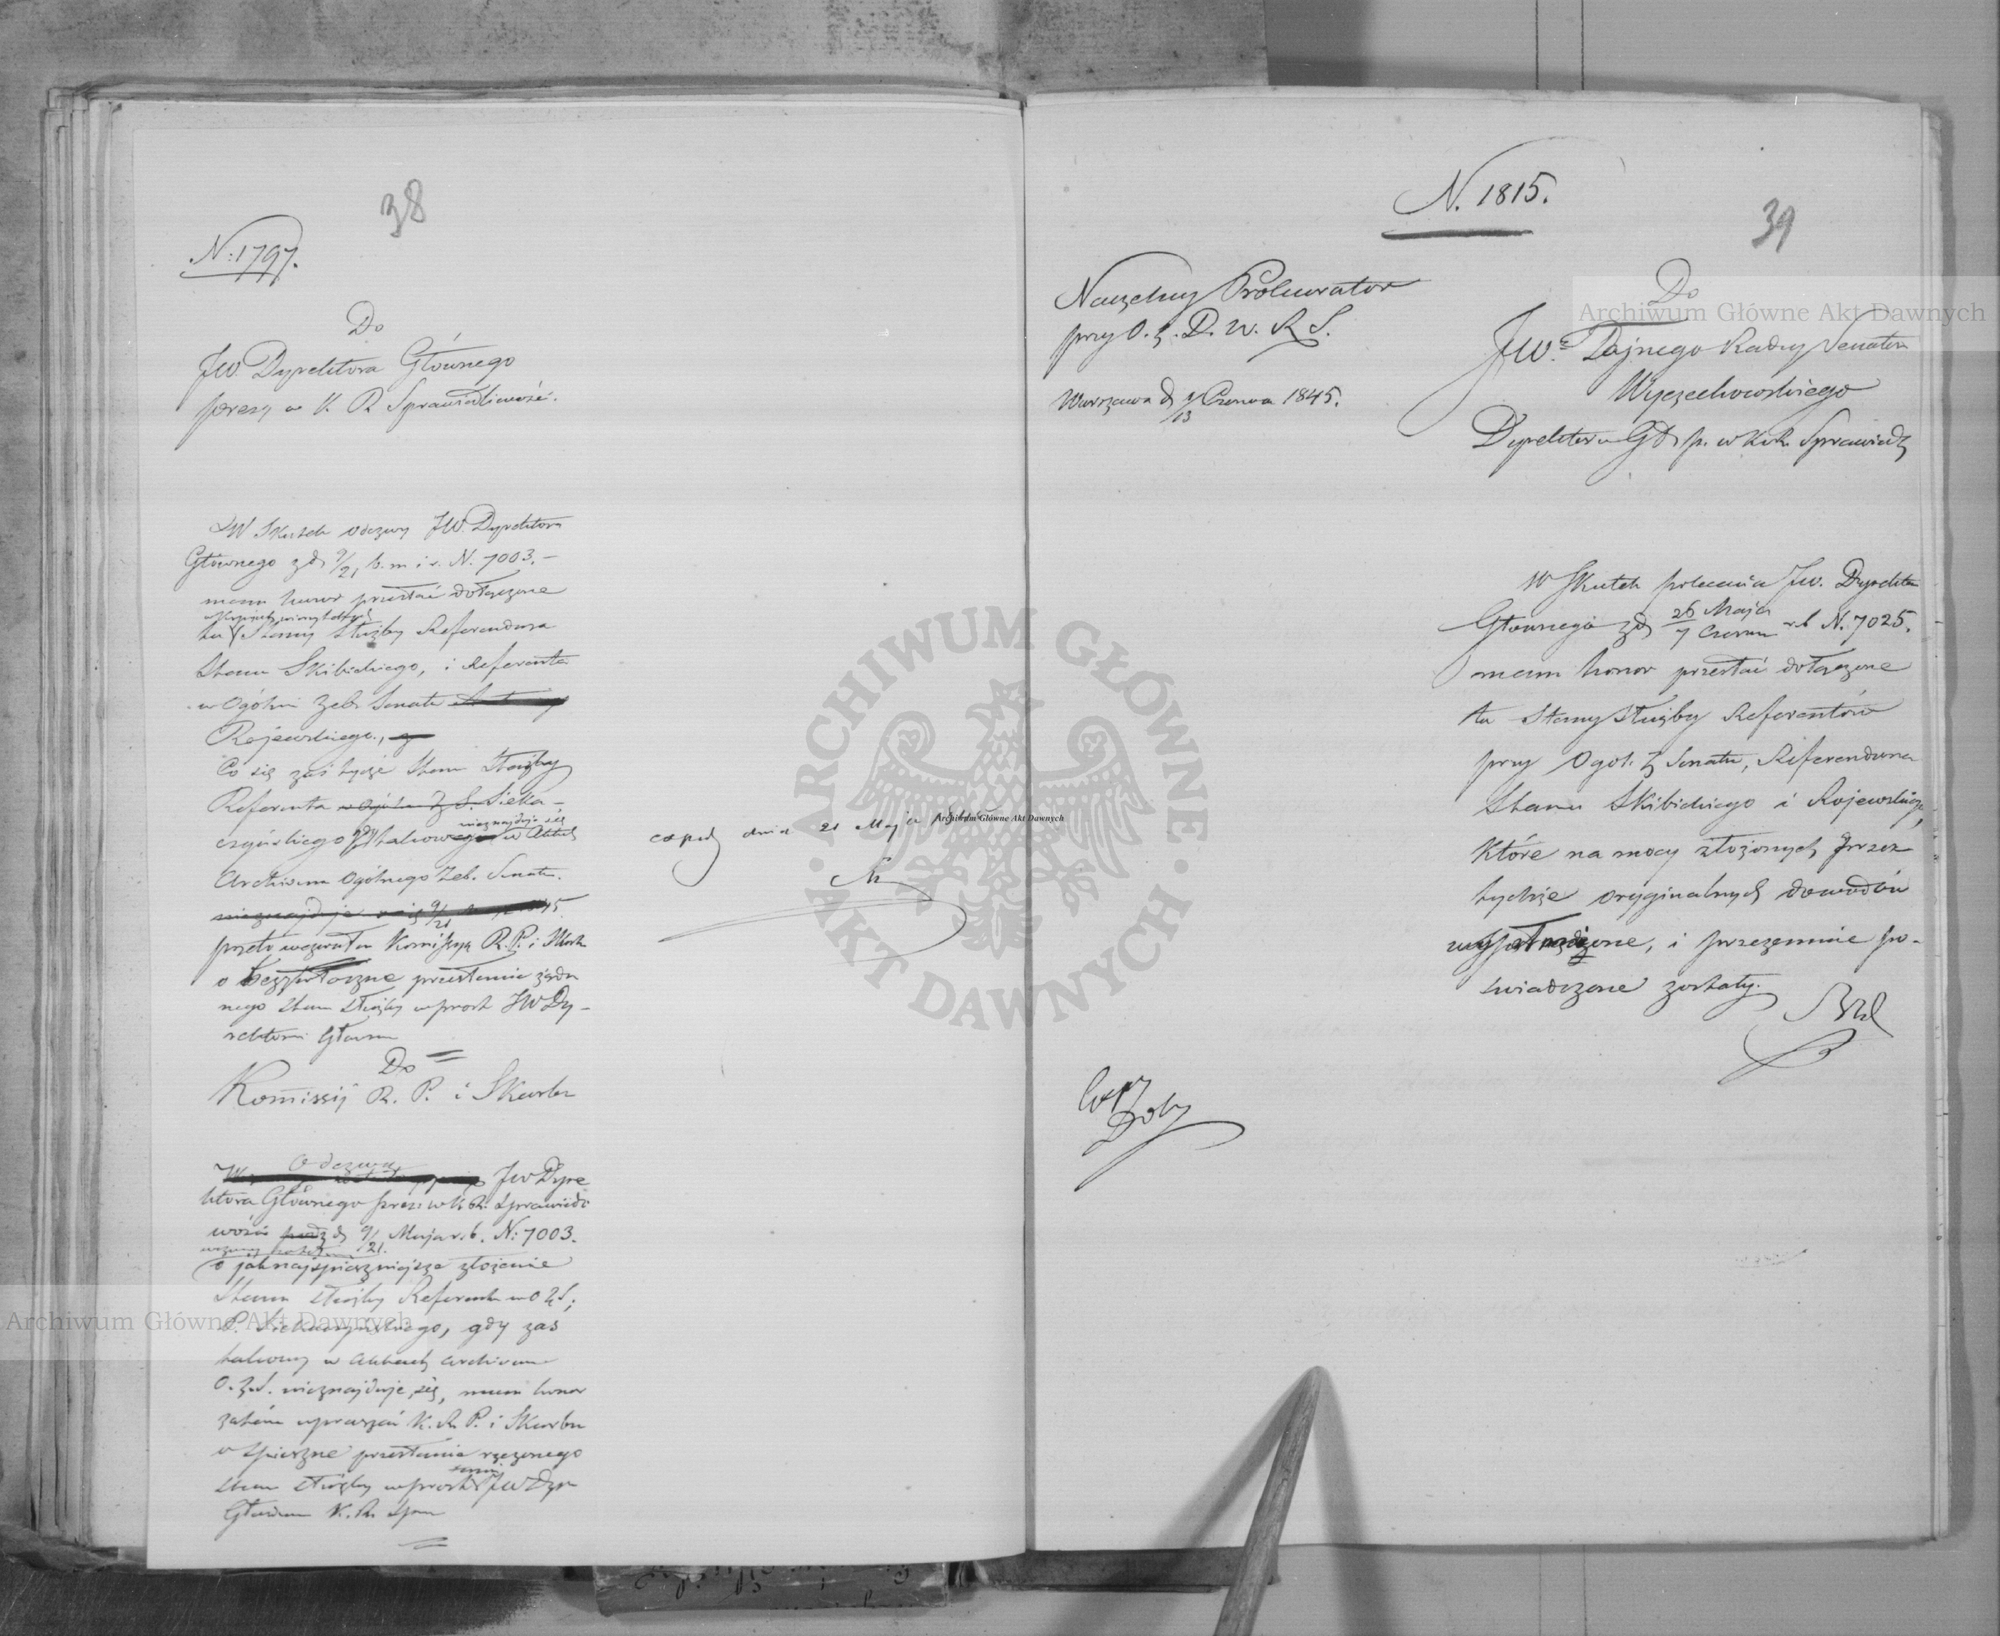 38
N. 1797.
Do
JW. Dyrektora Głównego
prezy w K. R. Sprawiedliwości.
W Skutek odezwy JW. Dyrektora
Głównego z d. 9/21 b. m. i r. N. 7003. —
mam honor przesłać dołączone
tu Stany służby Referendarza
Stanu Skibickiego, i Referenta
w Ogóln Zeb. Senatu
Rojewskiego.,
Co się zaś tycze Stanu Służby
Referenta w Ogóln Z. S. Sieka-
czyńskiego gdy takowy nieznajduje się w Aktach
Archiwum Ogólnego Zeb. Senatu.
nieznajduje się 9/21
przeto wezwałem Komissyą R. P. i Skarb
o bezzwłoczne przesłanie żąda
nego stanu służby wprost JW Dy-
rektorowi Główn
Do
Komissij R. P. i Skarbu
Odezwą JW Dyre
ktora Głównego prez. w K. R. Sprawiedli
wości z d. 9/21 Maja r. b. N: 7003.
o jaknajspieszniejsze złożenie
Stanu służby Referenta w O Z S;
P. Siekaczyńskiego, gdy zaś
takowy w Aktach Archiwum
O. Z. S. nieznajduje się, mam honor
zatém upraszać K. R. P. i Skarbu
o spieszne przesłanie rzeczonego
stanu służby wprost JW Dyr
Główn K. R. Spra
exped dnia 21 Maja
N. 1815.
39
Naczelny Prokurator
przy O. Z. D. W. R. S.
Warszawa d. 1/13 Czerwca 1845.
Do
JWo Tajnego Radcy Senatora
Wyczechowskiego
Dyrektora Gł. p. w K. R. Sprawiedl
W Skutek polecenia JW. Dyrekto
Głównego z d. 26 Maja / 7 Czerwca r. b N. 7025.
mam honor przesłać dołączone
tu Stany służby Referentów
przy Ogól. Z Senatu, Referendarza
Stanu Skibickiego i Rojewskiego,
które na mocy złożonych przez
tychże oryginalnych dowodów
wyporządzone, i przezemnie po-
świadczone zostały.
Archiwum Główne Akt Dawnych
Archiwum Główne Akt Dawnych
Archiwum Główne Akt Dawnych
ARCHIWUM GŁÓWNE · AKT DAWNYCH ·